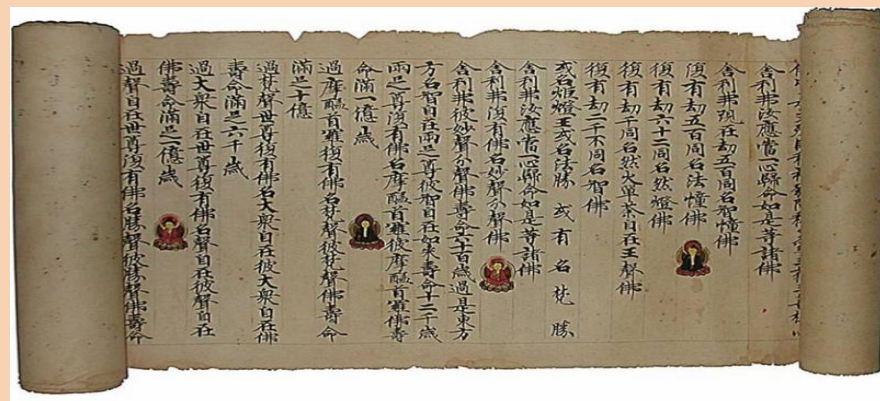 舍利弗汝應當一心歸命如是等諸佛
舍利弗現在劫五百同名智幢佛
復有劫五百同名法幢佛
復有劫六十二同名然燈佛
復有劫千同名然火單荼自在王聲佛
復有劫二千不同名智佛
或名姬燈王或名法勝 或有名梵勝
舍利弗汝應當一心歸命如是等諸佛
舍利弗復有佛名妙聲分聲佛
舍利弗彼妙聲分聲佛壽命六十百歲過是東方
方名智自在兩足尊彼智自在如來壽命十二千歲
兩足尊復有佛名摩醯首羅彼摩醯首羅佛壽
命滿一億歲
過摩醯首羅復有佛名梵聲彼梵聲佛壽命
滿足十億
過梵聲世尊復有佛名大衆自在彼大衆自在佛
壽命滿足六千歲
過大衆自在世尊復有佛名聲自在彼聲自在
佛壽命滿足一億歲
過聲自在世尊復有佛名勝聲彼勝聲佛壽命